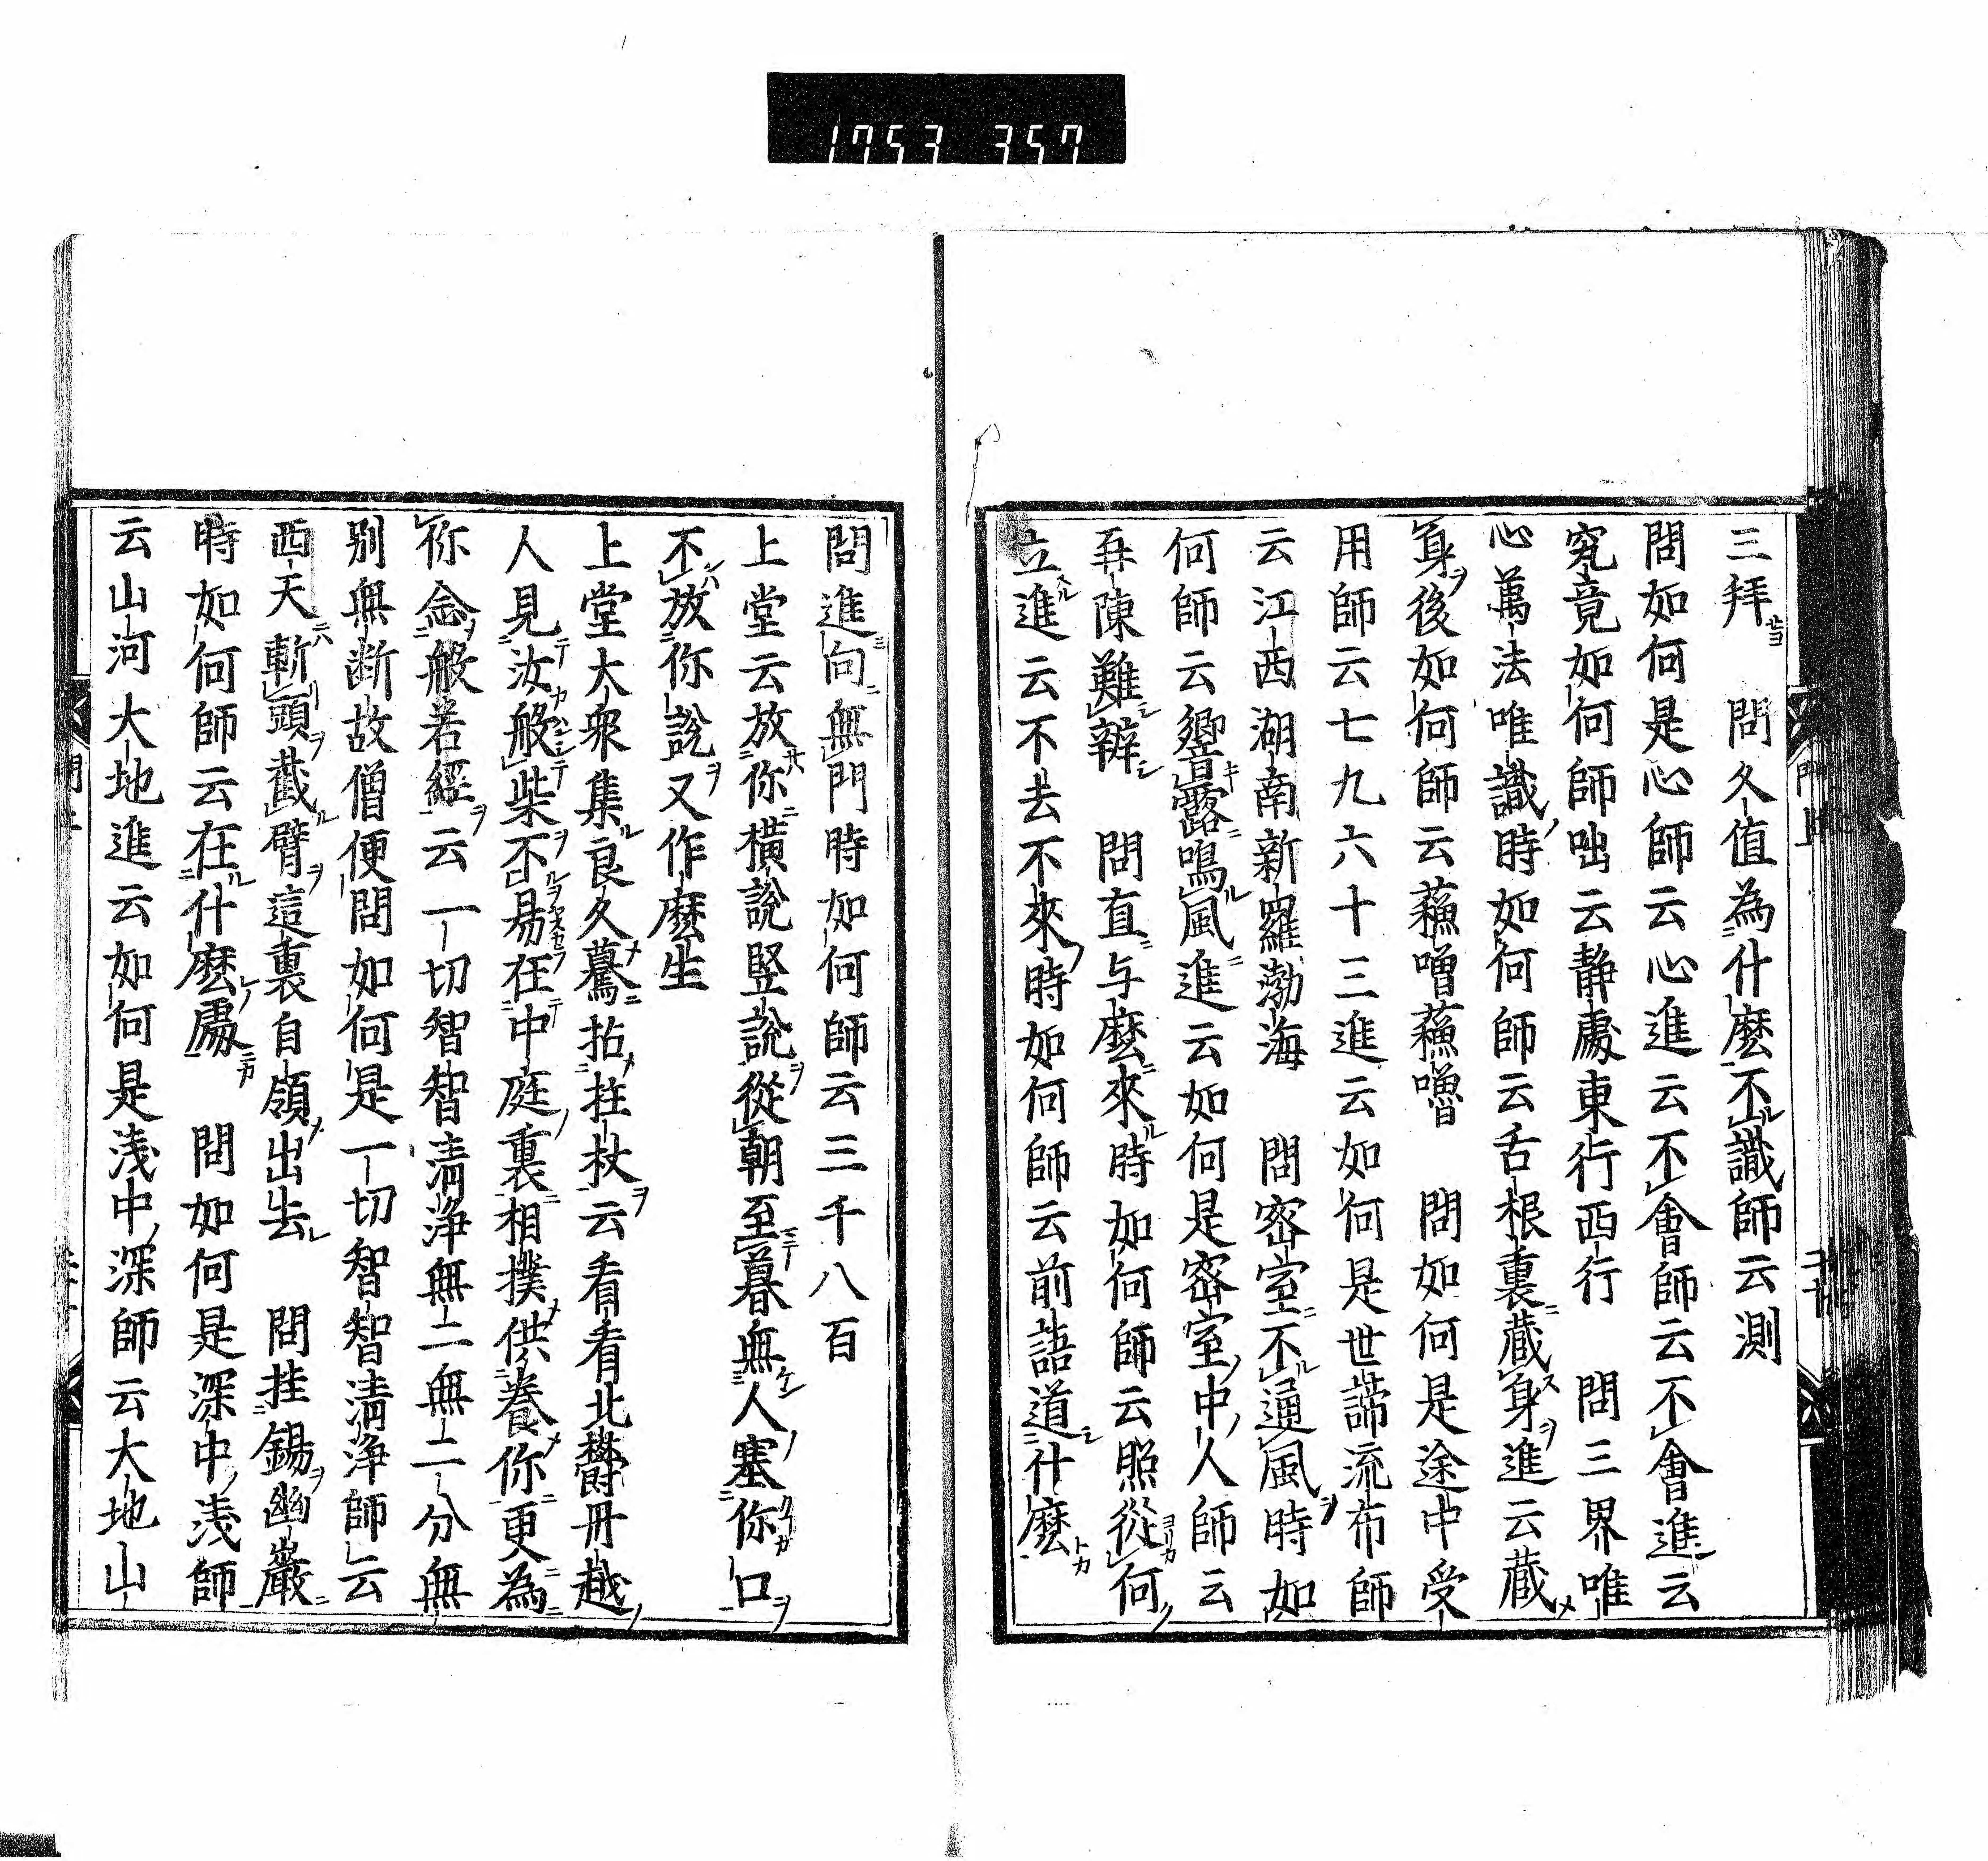 1753 357
三拜 問久值為什麽不識師云測
問如何是心師云心進云不會師云不會進云
究竟如何師咄云静處東行西行 問三界唯
心萬法唯識時如何師云舌根裏藏身進云藏
身後如何師云蘓嚕蘓嚕 問如何是途中受
用師云七九六十三進云如何是世諦流布師
云江西湖南新羅渤海 問密室不通風時如
何師云響露鳴風進云如何是密室中人師云
再陳難辨 問直与麽來時如何師云照從何
立進云不去不來時如何師云前語道什麽
問進向無門時如何師云三千八百
上堂云放你橫說竪說從朝至暮無人塞你口
不放你說又作麽生
上堂大衆集良久驀拈拄杖云看看北欝丹越
人見汝般柴不易在中庭裏相撲供養你更為
你念般若經云一切智智清淨無二無二分無
別無断故僧便問如何是一切智智清淨師云
西天斬頭截臂這裏自領出去 問挂錫幽巖
時如何師云在什麽處 問如何是深中浅師
云山河大地進云如何是浅中深師云大地山